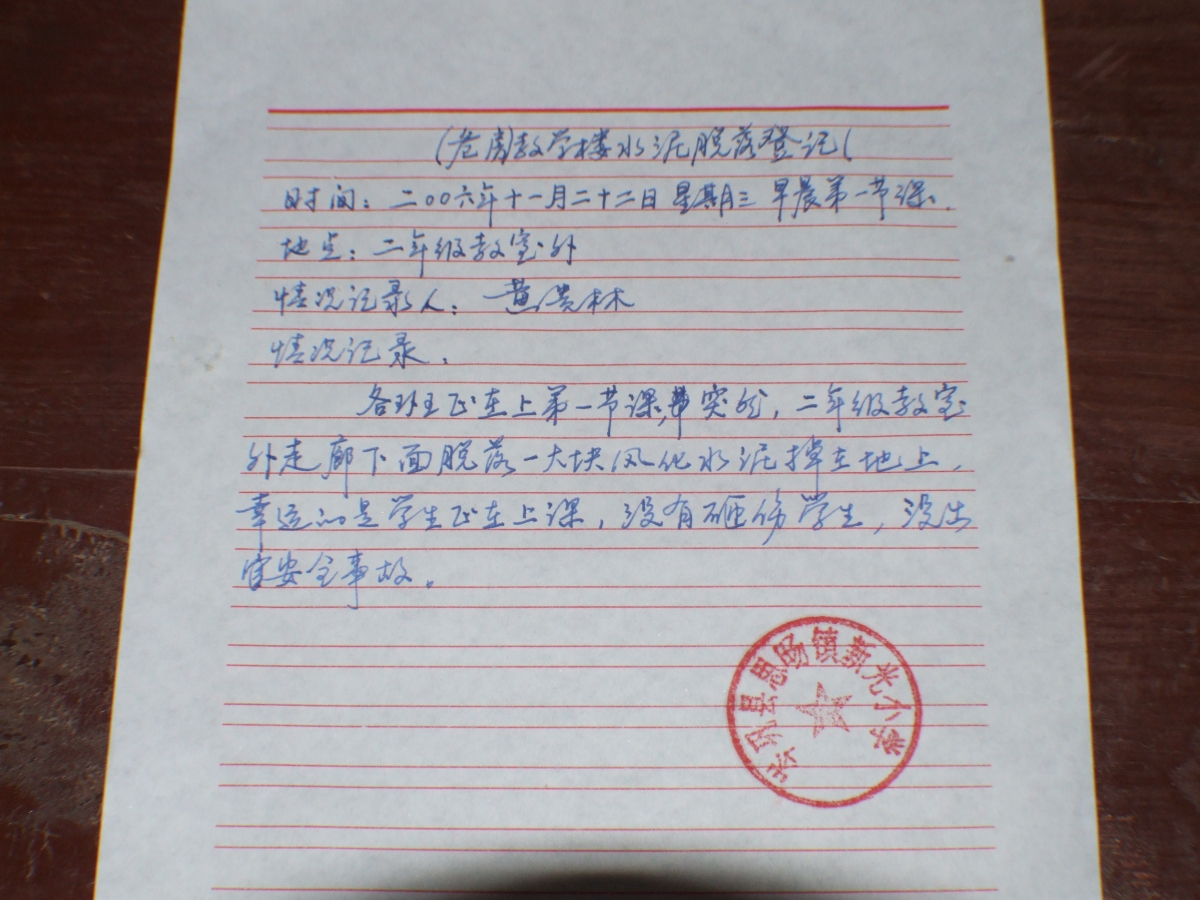 (危房)教学楼水泥脱落登记(
时间：二00六年十一月二十二日 星期三 早晨第一节课.
地点：二年级教室外
情况记录人：黄 林
情况记录.
各班正在上第一节课,突然，二年级教室
外走廊下面脱落一大块风化水泥掉在地上.
幸运的是学生正在上课，没有砸伤学生，没出
安全事故。
岑巩县思旸镇新光小学